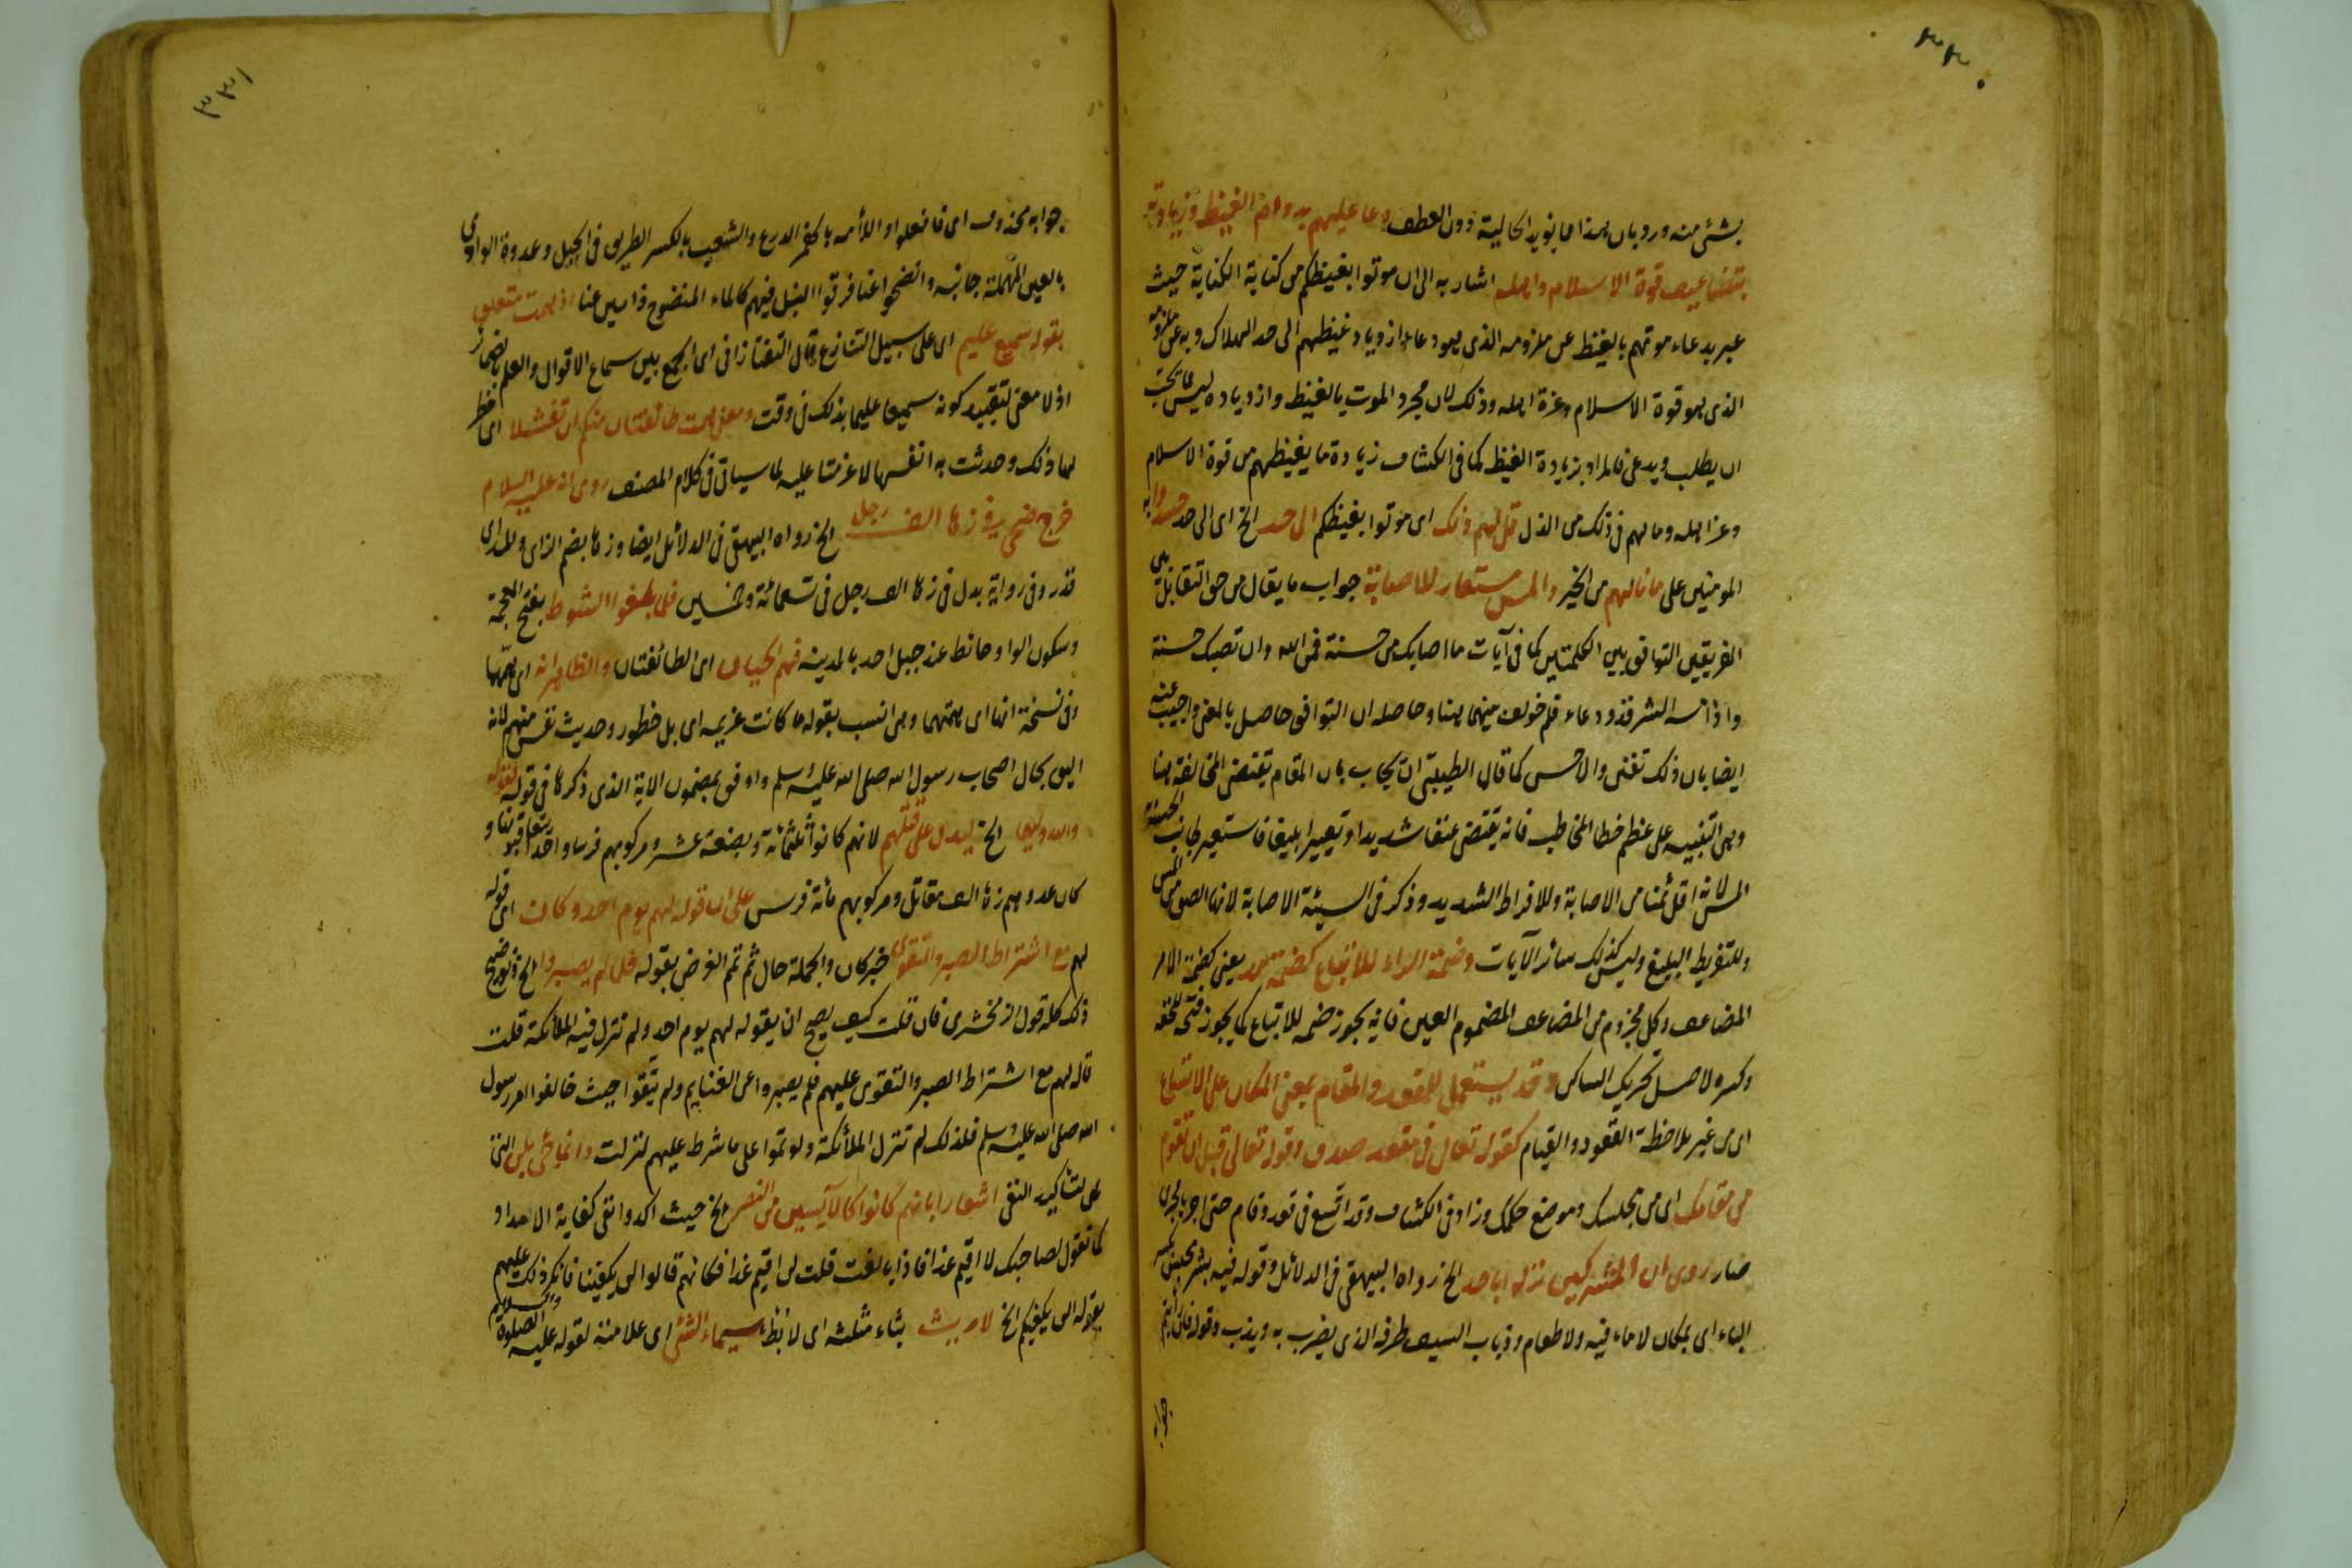 ٣٣٠
بشئ منه وروبان هذا مما يؤيد الحالية دون العطف دعا عليهم بدوام الغيظ وزيادته
بتضاعيف قوة الاسلام واهله اشار به الى ان موتوا بغيظكم من كناية الكناية حيث
عبر بدعاء موتهم بالغيظ عن ملزومه الذى هو دعاء ازدياد غيظهم الى حد الهلاك وبه عن ملزومه
الذى هو قوة الاسلام وعزة اهله وذلك لان مجرد الموت بالغيظ وازدياده ليس مما يحق
ان يطلب ويدعى فالمراد بزيادة الغيظ كما فى الكشاف زيادة ما يغيظهم من قوة الاسلام
وعز اهله وما لهم فى ذلك من الذل قل لهم ذلك اى موتوا بغيظكم الى حد الخ اى الى حد حسدوا به
المومنين على ما نالهم من الخير والمس مستعار للاصابة جواب ما يقال من حق التقابل بين
الفريقين التوافق بين الكلمتين كما فى آيات ما اصابك من حسنة فمن الله وان تصبك حسنة
واذا مسه الشر فذو دعاء فلم خولف بينهما هنا وحاصله ان التوافق حاصل بالمعنى واجيب عنه
ايضا بان ذلك تفنن والاحسن كما قال الطيبى ان يجاب بان المقام يقتضى المخالفة هنا
وهى التنبيه على عظم خطا المخاطب فانه يقتضى عنفا شديدا وتعييرا بليغا فاستعير لجانب الحسنة
المس لانه اقل تمكنا من الاصابة وللافراط الشديد وذكر فى السيئة الاصابة لانها الصق من المس
وللتفريط البليغ وليس كذلك سائر الآيات وضمة الراء للاتباع كضمة مد يعنى كضمة الامر
المضاعف وكل مجزوم من المضاعف المضموم العين فانه يجوز ضمه للاتباع كما يجوز فتحه للخفة
وكسره لاصل تحريك الساكن وقد يستعمل المقعد والمقام بمعنى المكان على الاتساع
اى من غير ملاحظة القعود والقيام كقوله تعالى فى مقعد صدق وقوله تعالى قبل ان تقوم
من مقامك اى من مجلسك وموضع حكمك وزاد فى الكشاف وقد اتسع فى قعد وقام حتى اجريا مجرى
صار روى ان المشركين نزلوا باحد الخ رواه البيهقى فى الدلائل وقوله فيه بشر محبس بكسر
الباء اى بمكان لا ماء فيه ولا طعام وذباب السيف طرفه الذى يضرب به ويذب وقوله فان رأيتم
جوابه
٣٣١
جوابه محذوف اى فافعلوا واللأمه بالهمز الدرع والشعب بالكسر الطريق فى الجبل وعدوة الوادى
بالعين المهملة جانبه وانضحوا عنا فرقوا النبل فيهم كالماء المنضوح ذابين عنا اذ همت متعلق
بقوله سميع عليم اى على سبيل التنازع وقال التفتازانى اى الجمع بين سماع الاقوال والعلم بالضمائر
اذ لا معنى لتقييد كونه سميعا عليما بذلك فى وقت ومعنى همت طائفتان منكم ان تفشلا اى خطر
لهما ذلك وحدثت به انفسهما لا عزمتا عليه لما سياتى فى كلام المصنف روى انه عليه السلام
خرج ضحى فى زهاء الف رجل الخ رواه البيهقى فى الدلائل ايضا وزهاء بضم الزاى والمد اى
قدر وفى رواية بدل فى زهاء الف رجل فى تسعمائة وخمسين فلما بلغوا الشوط بفتح المعجمة
وسكون الواو حائط عند جبل احد بالمدينة فهم الحيان اى الطائفتان والظاهر انه اى همها
وفى نسخة انها اى همتهما وهى انسب بقوله ما كانت عزيمه اى بل خطور وحديث نفس منهم لانه
اليق بحال اصحاب رسول الله صلى الله عليه وسلم واوفق بمضمون الاية الذى ذكرها فى قوله لقوله
والله وليهما الخ ليدل على قلتهم لانهم كانوا ثلثمائة وبضعة عشر ومركوبهم فرسا واحدا يتعاقبونها و
كان عدوهم زهاء الف مقاتل ومركوبهم مائة فرس على ان قوله لهم يوم احد وكان اى قوله
لهم مع اشتراط الصبر والتقوى خبر كان والجملة حال ثم تمم الغرض بقوله فلما لم يصبروا الخ وتوضيح
ذلك كله قول الزمخشرى فان قلت كيف يصح ان يقوله لهم يوم احد ولم تنزل فيه الملائكة قلت
قاله لهم مع اشتراط الصبر والتقوى عليهم فلم يصبروا عن الغنايم ولم يتقوا حيث خالفوا امر رسول
الله صلى الله عليه وسلم فلذلك لم تنزل الملائكة ولو تموا على ما شرط عليهم لنزلت وانما جئ بلن التى
هى لتأكيد النفى اشعارا بانهم كانوا كالآيسين من النصر الخ حيث اكد وانفى كفاية الامداد
كما تقول لصاحبك لا اقيم غدا فاذا بالغت قلت لن اقيم غدا فكانهم قالوا لن يكفينا فانكر ذلك عليهم
بقوله الن يكفيكم الخ لا ريث بثاء مثلثه اى لا بطاء سيماء الشئ اى علامته لقوله عليه الصلوة والسلام